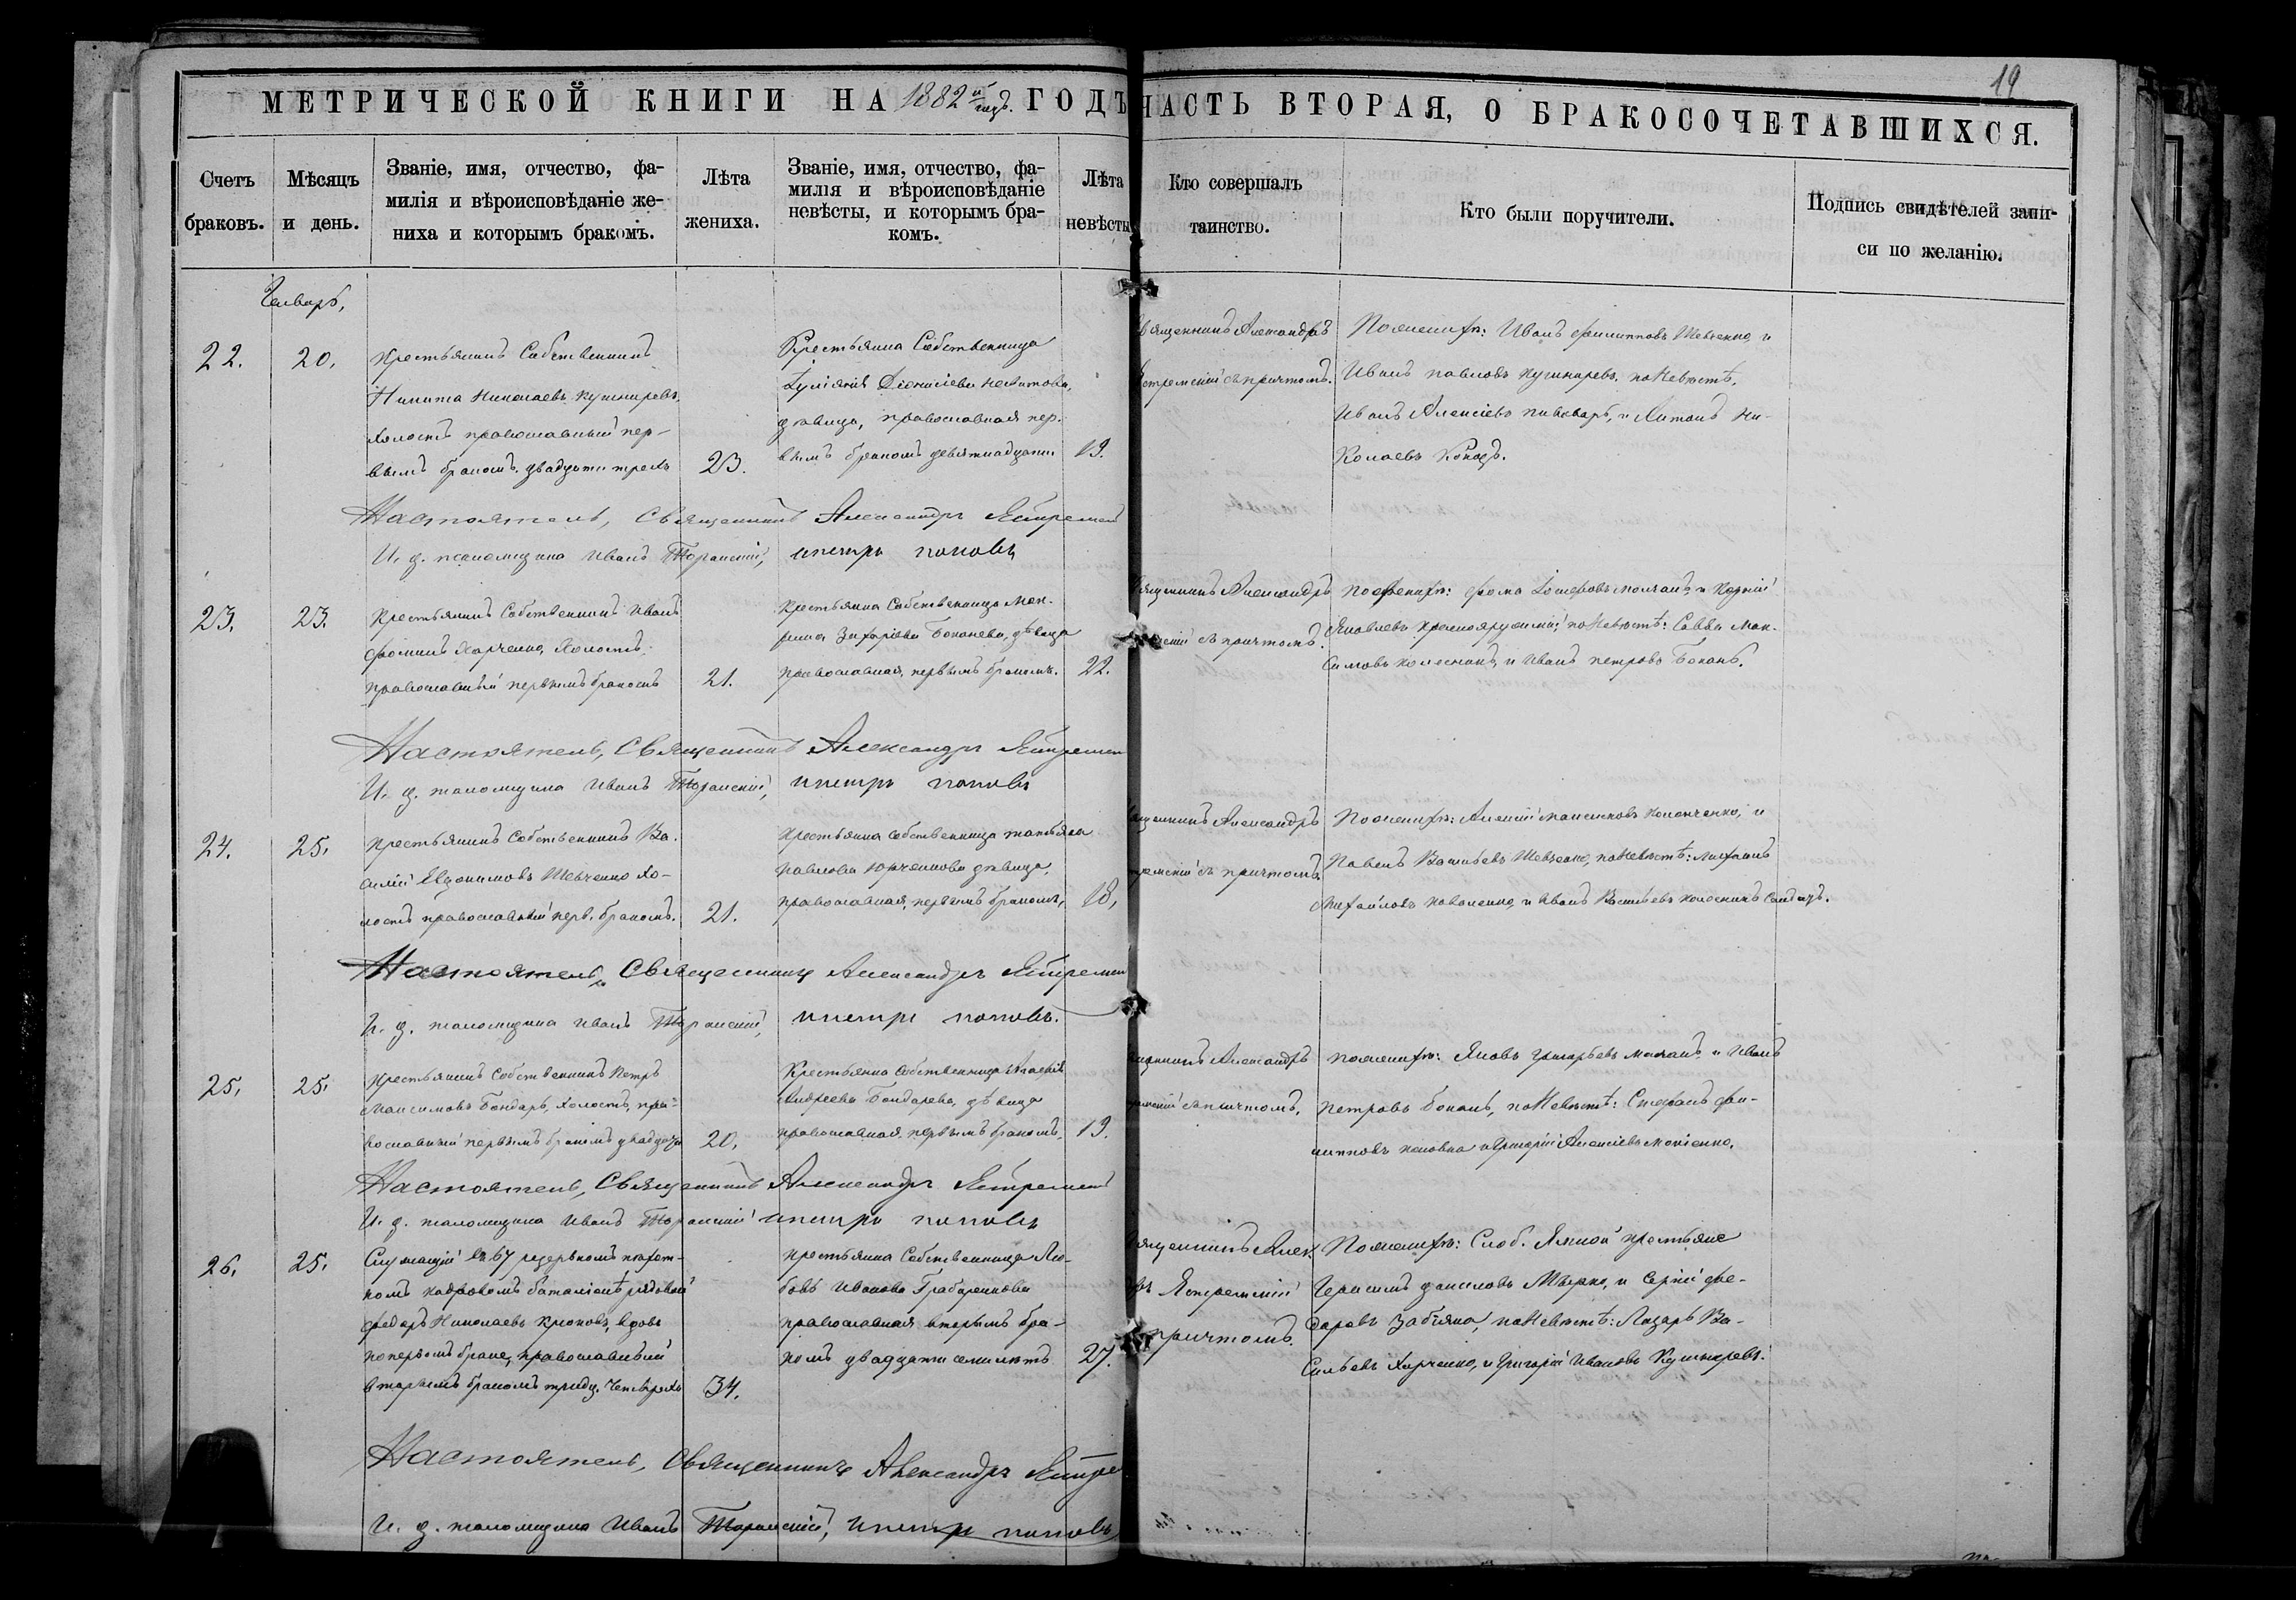 19
МЕТРИЧЕСКОЙ КНИГИ НА 1882 й годъ. ГОДЪ
ЧАСТЬ ВТОРАЯ, О БРАКОСОЧЕТАВШИХСЯ.
Счетъ
браковъ.
Мѣсяцъ
и день.
Званіе, имя, отчество, фа-
милія и вѣроисповѣданіе же-
ниха и которымъ бракомъ.
Лѣта
жениха.
Званіе, имя, отчество, фа-
милія и вѣроисповѣданіе
невѣсты, и которымъ бра-
комъ.
Лѣта
невѣсты
Кто совершалъ
таинство.
Кто были поручители.
Подпись свидѣтелей запи-
си по желанію.
Январь,
22.
20.
Крестьянинъ Собственникъ
Никита Николаевъ Кушнаревъ
холостъ православный пер-
вымъ бракомъ двадцати трехъ
23.
Крестьянка Собственница
Діонисіева
дѣвица, православная пер-
вымъ бракомъ девятнадцати
19.
Священникъ Александръ
Ястремскій съ причтомъ.
По женихѣ: Иванъ Филипповъ Шевченко и
Иванъ Павловъ Кушнаревъ. по Невѣстѣ,
Иванъ Алексіевъ Пивоваръ, и Антонъ Ни-
колаевъ
Настоятель, Священникъ Александръ Ястремскій
И. д. псаломщика Иванъ Торанскій, и Петръ Поповъ
23.
23.
Крестьянинъ Собственникъ Иванъ
Фоминъ Харченко, Холостъ,
православный первымъ бракомъ
21.
Крестьянка Собственница Мак-
рина Захаріева Боканева, дѣвица
православная, первымъ бракомъ.
22.
Священникъ Александръ
съ причтомъ.
По женихѣ: Фома Молчанъ и Корній
Яковлевъ Краснояружскій, по Невѣстѣ: Савва Мак-
симовъ Колесникъ и Иванъ Петровъ Боканъ.
Настоятель, Священникъ Александръ Ястремскій
И. д. псаломщика Иванъ Торанскій, и Петръ Поповъ
24.
25.
Крестьянинъ Собственникъ Ва-
силій Евдокимовъ Шевченко хо-
лостъ православный перв. бракомъ.
21.
Крестьянка собственница Татьяна
Павлова Юрченкова дѣвица,
православная, первымъ бракомъ,
18,
Священникъ Александръ
съ причтомъ
По женихѣ: Алексій и
Павелъ Васильевъ Шевченко, по Невѣстѣ: Михаилъ
Михайловъ Коваленко, и Иванъ Васильевъ Колесникъ
Настоятель, Священникъ Александръ Ястремскій
И. д. псаломщика Иванъ Торанскій, и Петръ Поповъ.
25,
25,
Крестьянинъ Собственникъ Петръ
Максимовъ Бондарь, Холостъ, пра-
вославный первымъ бракомъ двадцати
20,
Крестьянка Собственница
Андреева Бондарева, дѣвица
православная, первымъ бракомъ,
19.
Священникъ Александръ
съ причтомъ.
По женихѣ: Яковъ Григорьевъ Молчанъ и Иванъ
Петровъ Боканъ, по Невѣстѣ: Стефанъ Фи-
липповъ и Григорій Алексіевъ
Настоятель, Священникъ Александръ Ястремскій
И. д. псаломщика Иванъ Торанскій и Петръ Поповъ
26.
25.
Служащій въ 67 резервномъ пѣхот-
номъ кадровомъ баталіонѣ рядовой
Федоръ Николаевъ Крюковъ, вдовъ
по первомъ браке, православный
вторымъ бракомъ тридц. четырехъ
34.
Крестьянка Собственница Лю-
бовь Иванова Грабаренкова
православная вторымъ бра-
комъ двадцати семи лѣтъ
27.
Священникъ Алек.
Ястремскій
причтомъ.
По женихѣ: Слоб. крестьяне
Герасимъ Даниловъ и Сергій Фе-
доровъ Забіяка, по Невѣстѣ: Лазарь Ва-
сильевъ Харченко, и Григорій Ивановъ Кушнаревъ.
Настоятель, Священникъ Александръ
И. д. псаломщика Иванъ Торанскій, и Петръ Поповъ